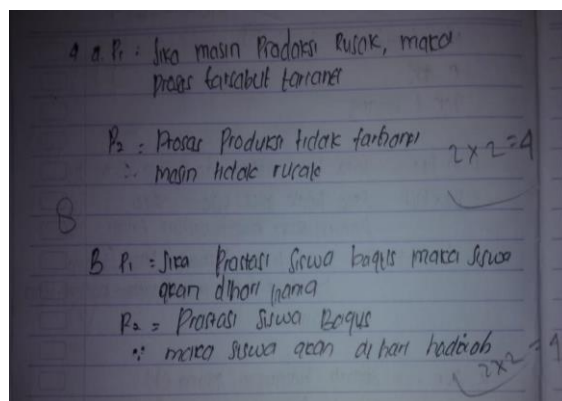 4 a. P1 : Jika masin Prodoksi Rusak, maka
Proses tarsabut
P2 = Prosas Produksi tidak
2 x 2 = 4
∴ masin tidak rusak
8
B P1 = Jika Prostasi Siswa bagus maka siswa
akan diberi
P2 = Prostasi Siswa Bagus
∵ maka siswa akan di beri hadiah
2x2 = 4